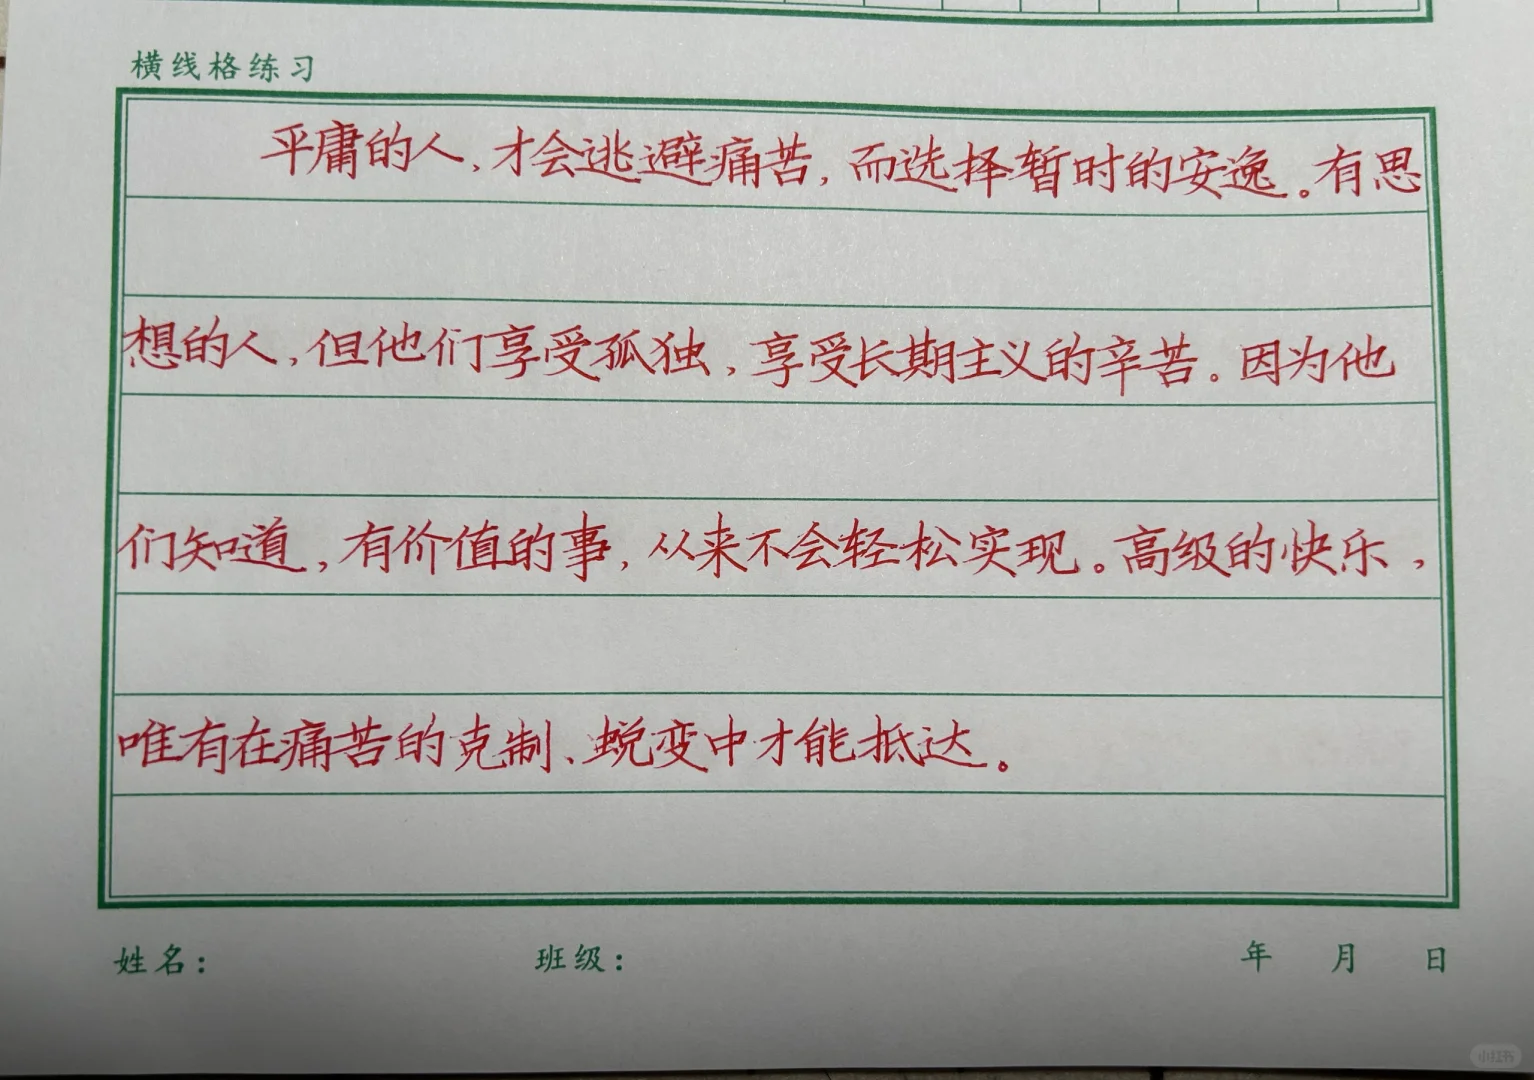 横线格练习
平庸的人，才会逃避痛苦，而选择暂时的安逸。有思
想的人，但他们享受孤独，享受长期主义的辛苦。因为他
们知道，有价值的事，从来不会轻松实现。高级的快乐，
唯有在痛苦的克制、蜕变中才能抵达。
姓名： 班级： 年 月 日
小红书